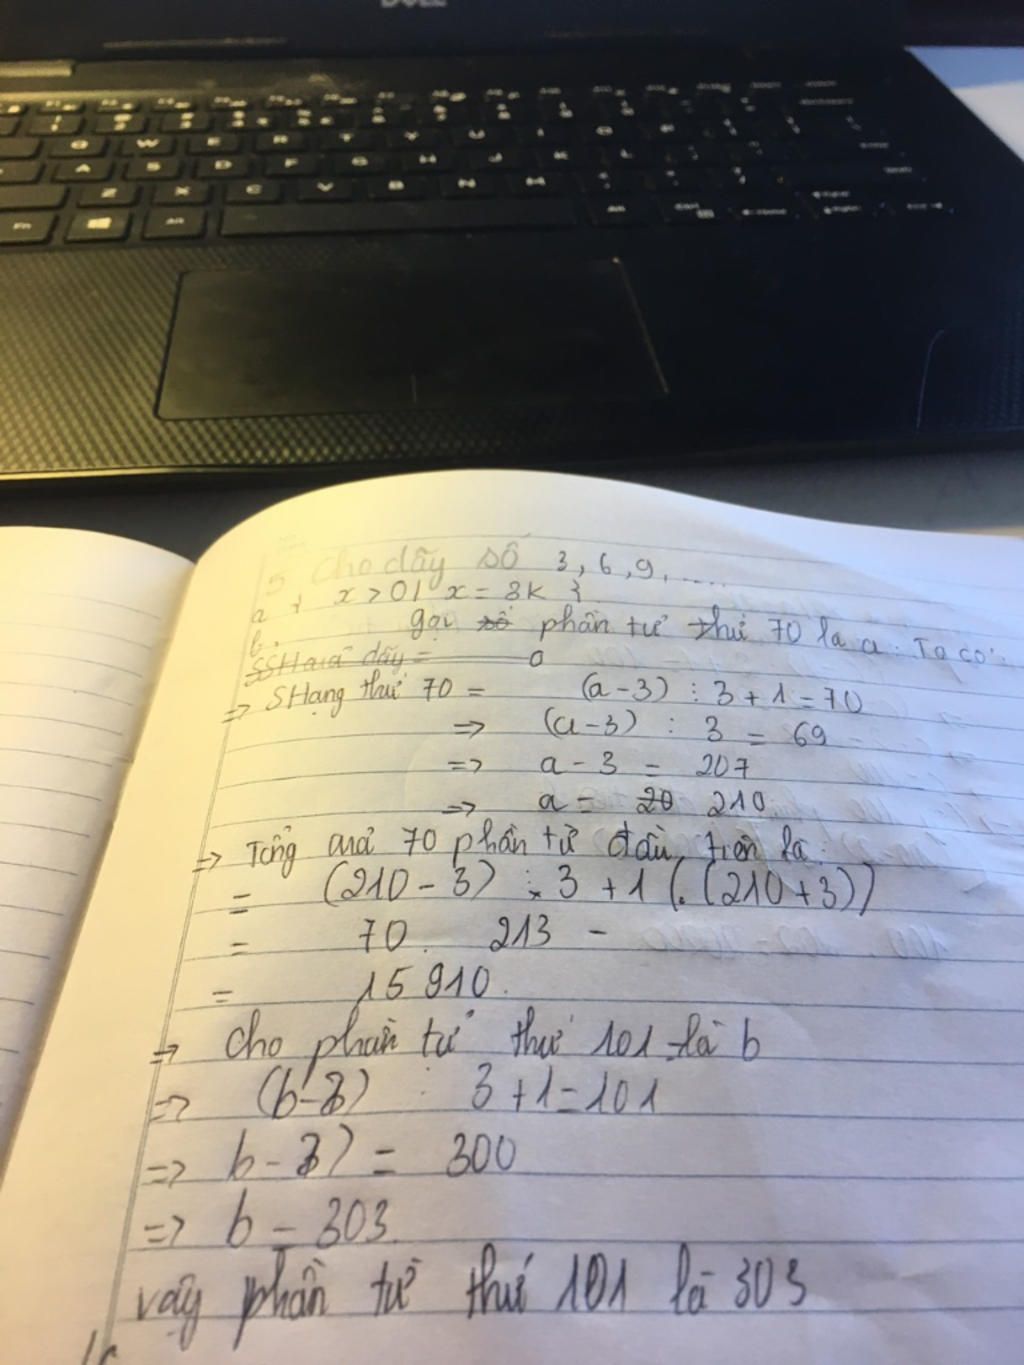 DELL
Q W E R T Y U I O P
A S D F G H J K L
Z X C V B N M
Fn Alt Alt Ctrl
5 Cho dãy số 3, 6, 9, ....
a { x > 0 | x = 3k }
b. gọi số phần tử thứ 70 là a. Ta có:
SSH của dãy = a
=> SHạng thứ 70 = (a - 3) : 3 + 1 = 70
=> (a - 3) : 3 = 69
=> a - 3 = 207
=> a = 20 210
=> Tổng của 70 phần tử đầu tiên là:
= (210 - 3) : 3 + 1 (. (210 + 3))
= 70 . 213 -
= 15 910.
=> Cho phần tử thứ 101 là b
=> (b - 3) : 3 + 1 = 101
=> b - 3) = 300
=> b = 303.
vậy phần tử thứ 101 là 303